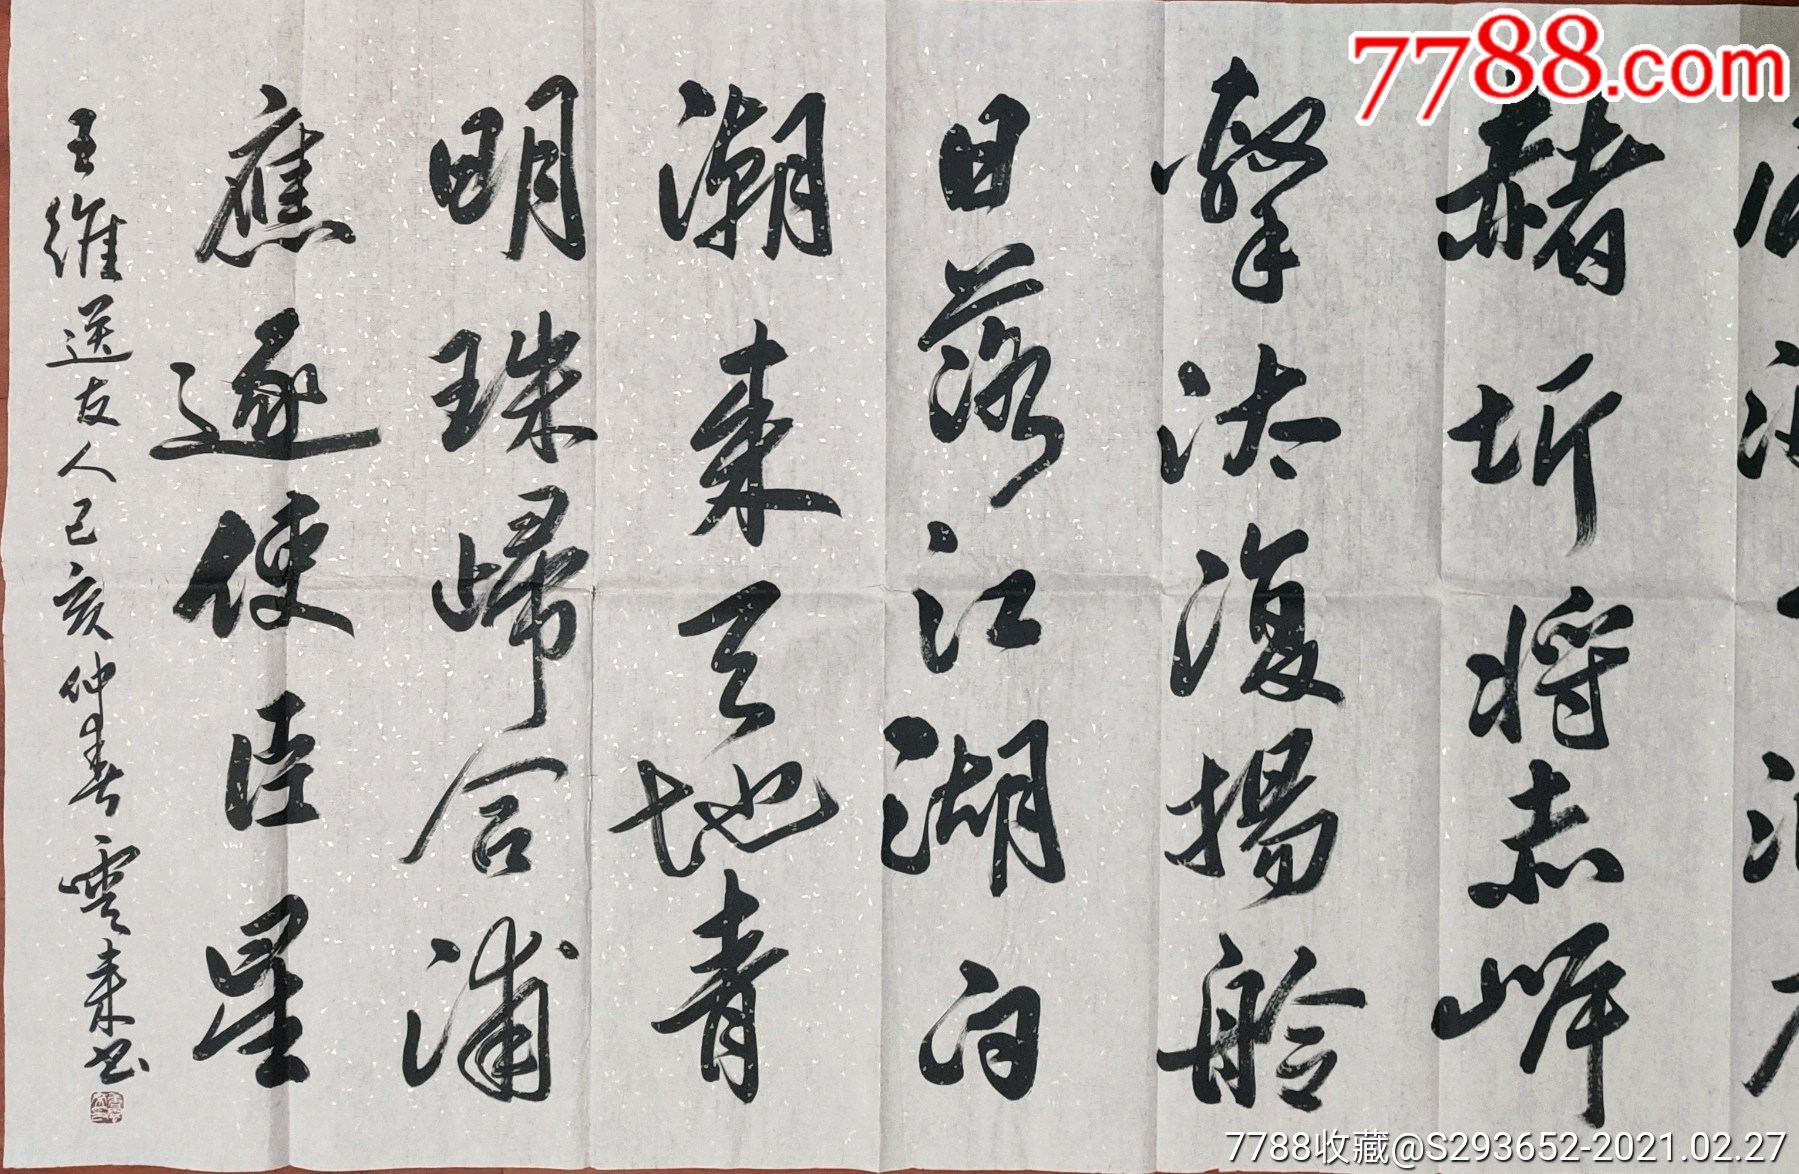 7788.com
赭圻將赤岸
擊汰復揚舲
日落江湖白
潮来天地青
明珠歸合浦
應逐使臣星
王維送友人己亥仲春雲来书
7788收藏@S293652-2021.02.27